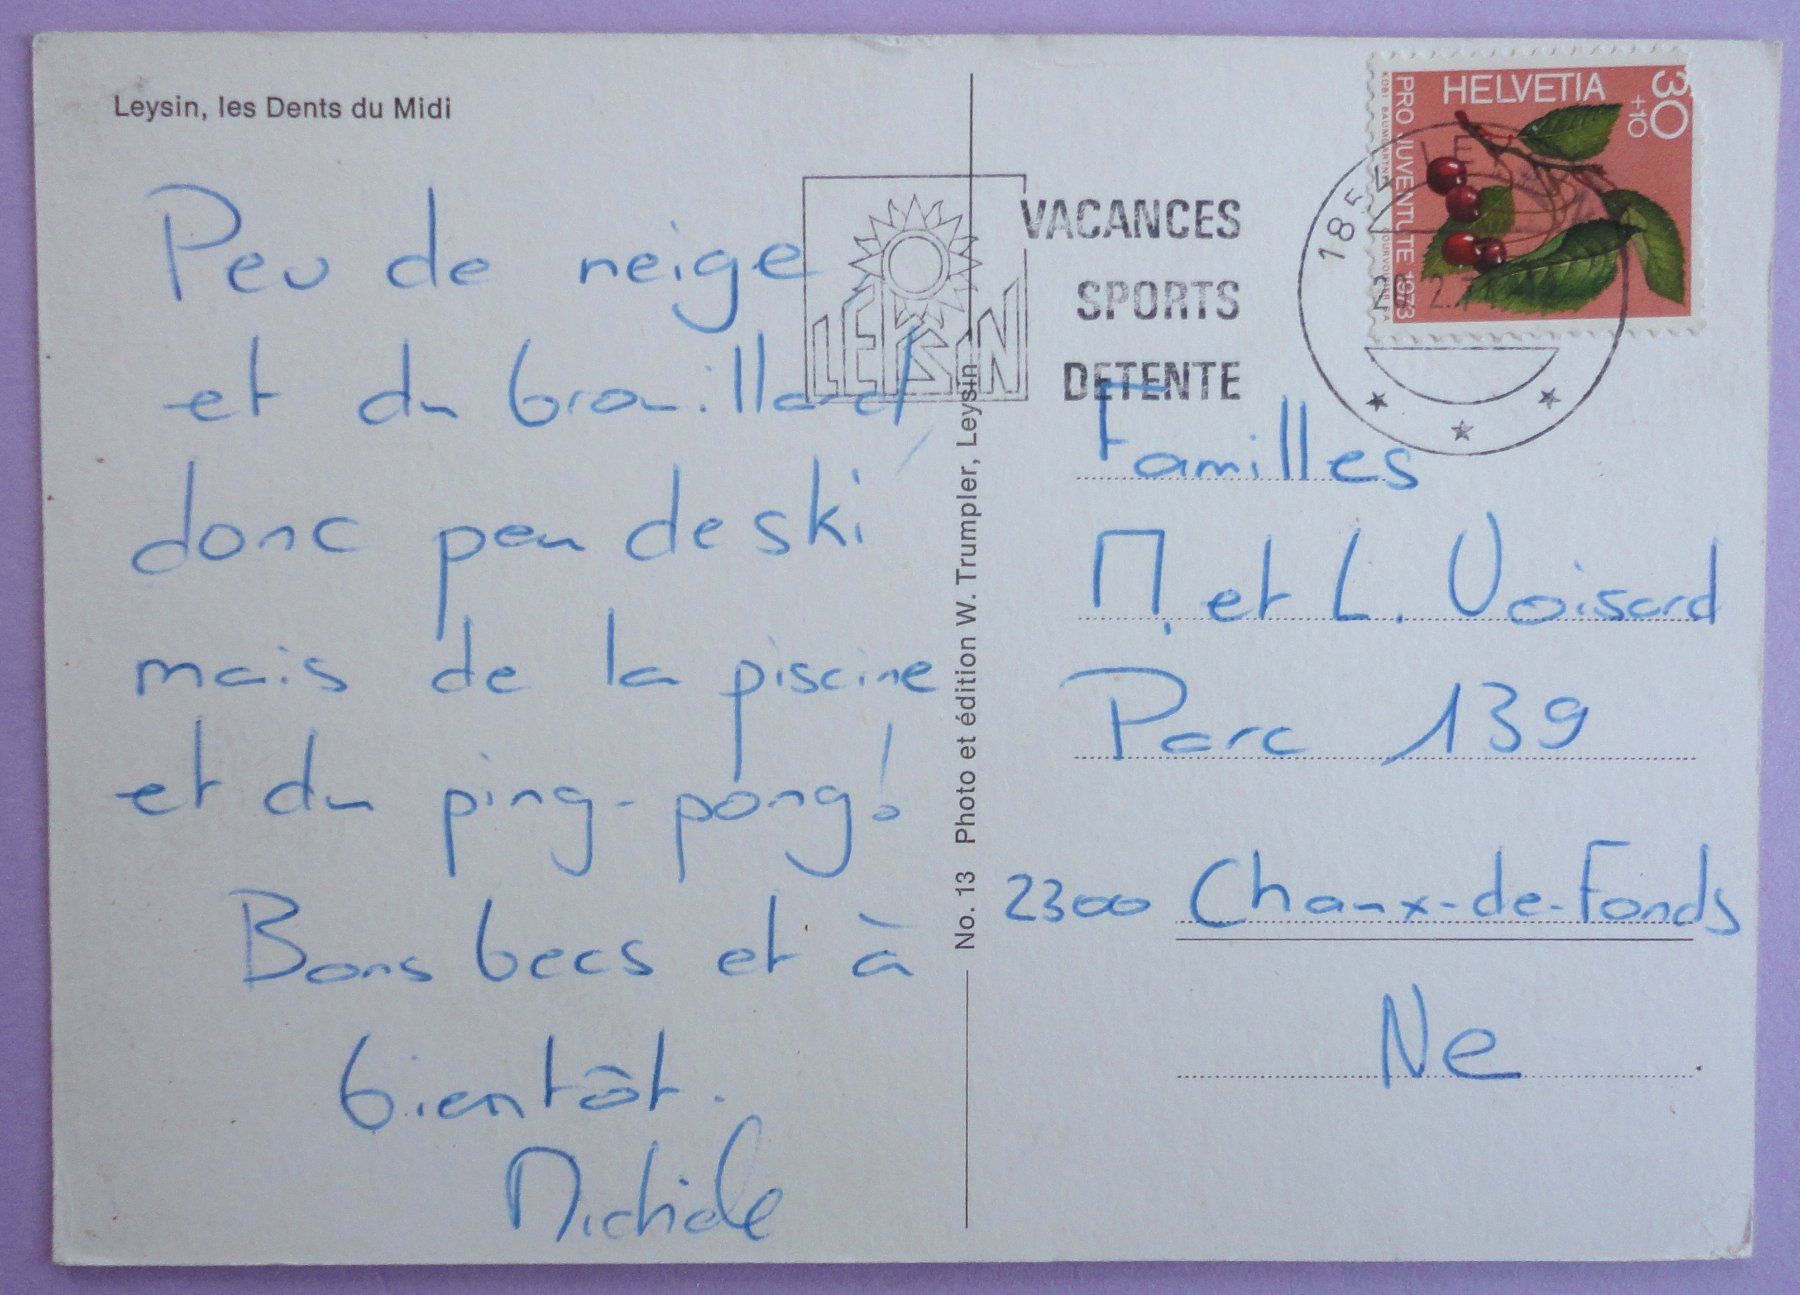 Leysin, les Dents du Midi
Peu de neige
et du brouillard,
donc peu de ski
mais de la piscine
et du ping-pong!
Bons becs et à
bientôt.
Michèle
No. 13 Photo et édition W. Trumpler, Leysin
LEYSIN
VACANCES
SPORTS
DETENTE
HELVETIA
30
+10
PRO JUVENTUTE 1973
Familles
M. et L. Voisard
Parc 139
2300 Chaux-de-Fonds
Ne